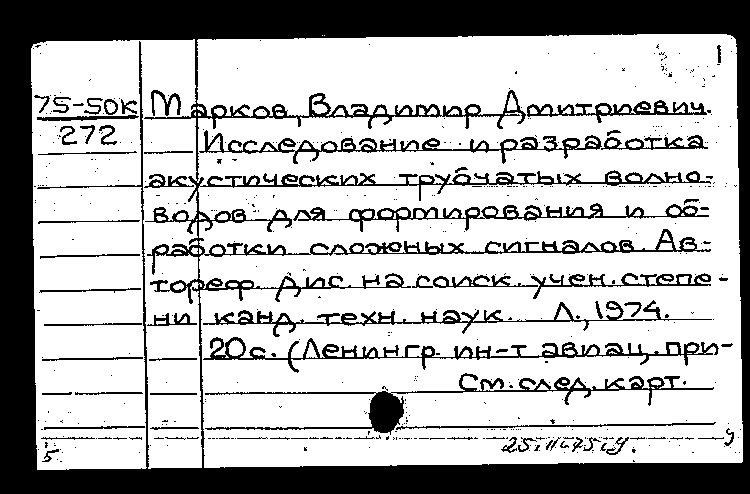 1
75-50К Марков, Владимир Дмитриевич.
272
Исследование и разработка
акустических трубчатых волно-
водов для формирования и об-
работки сложных сигналов. Ав-
тореф. дис. на соиск. учен. степе-
ни канд. техн. наук. Л., 1974.
20с. (Ленингр. ин-т авиац. при-
См. след. карт.
5